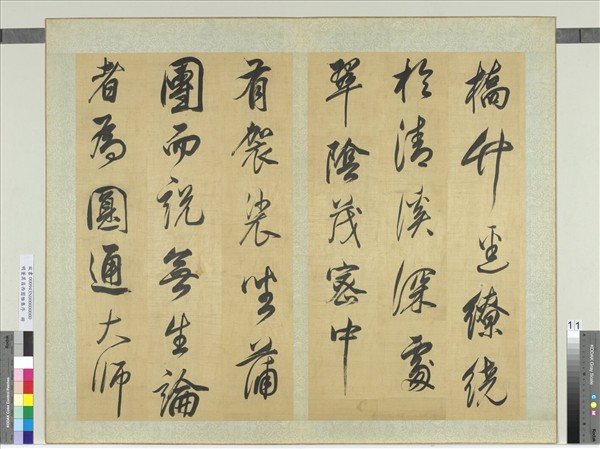 橋竹逕繚繞
於清溪深處
翠陰茂密中
有袈裟坐蒲
團而說無生論
者為圓通大師
11